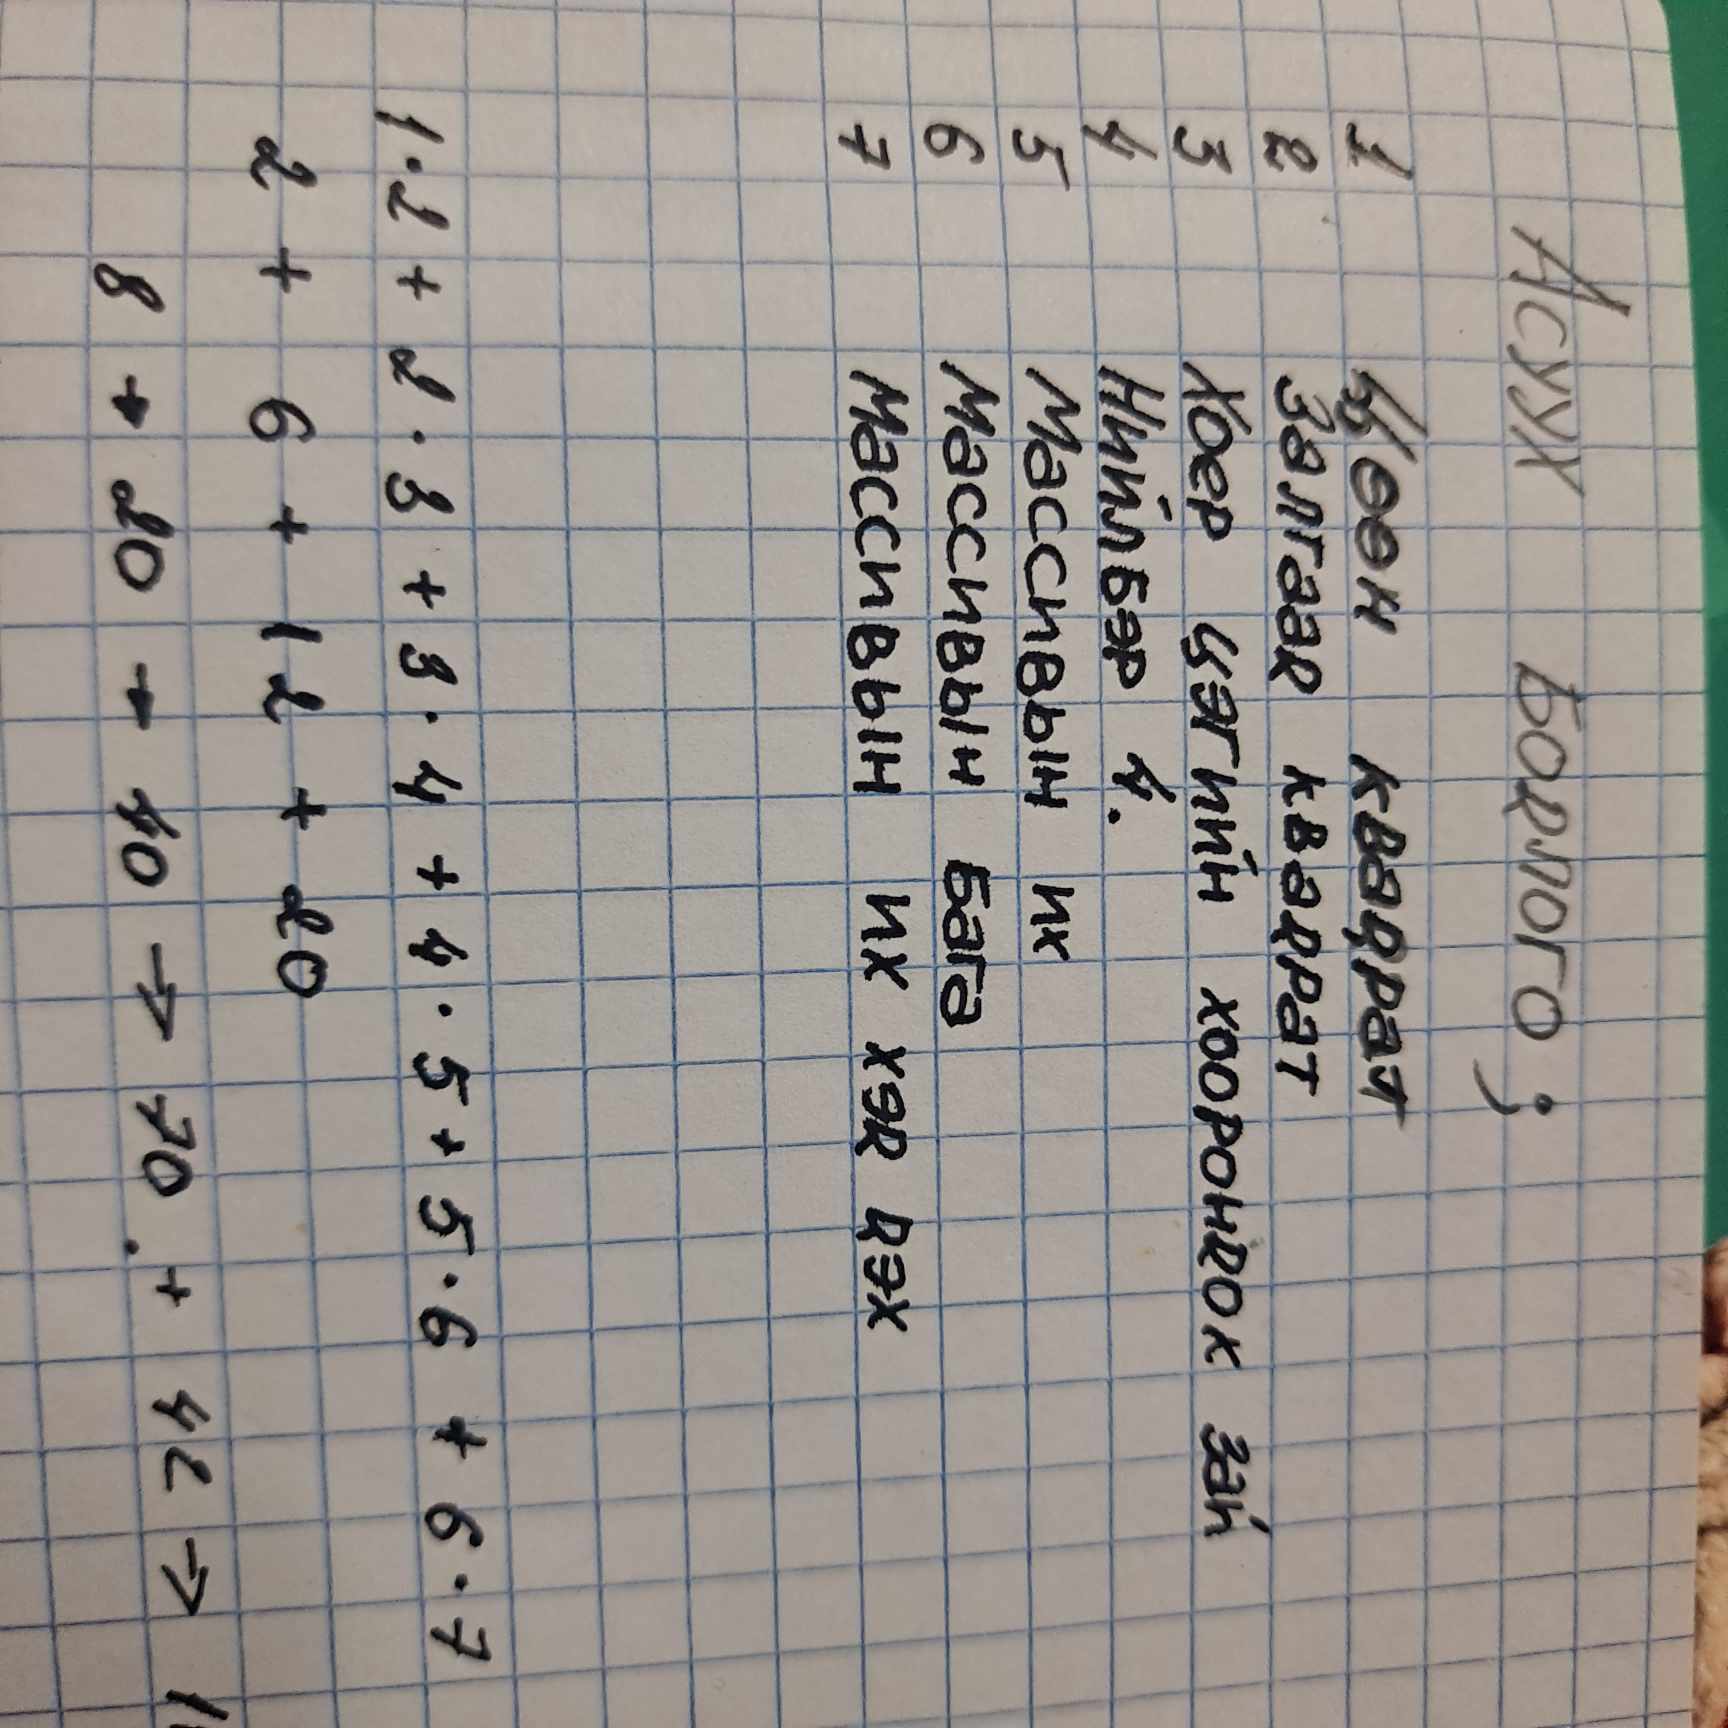 Асуух Бодлого;
1 Цөөн квадрат
2 Залгаад квадрат
3 Хоер цэгийн хоорондох зай
4 Нийлбэр 4.
5 Массивын их
6 Массивын бага
7 Массивын их хэд дэх
1·2 + 2·3 + 3·4 + 4·5 + 5·6 + 6·7
2 + 6 + 12 + 20
8 → 20 → 40 → 70 + 42 →